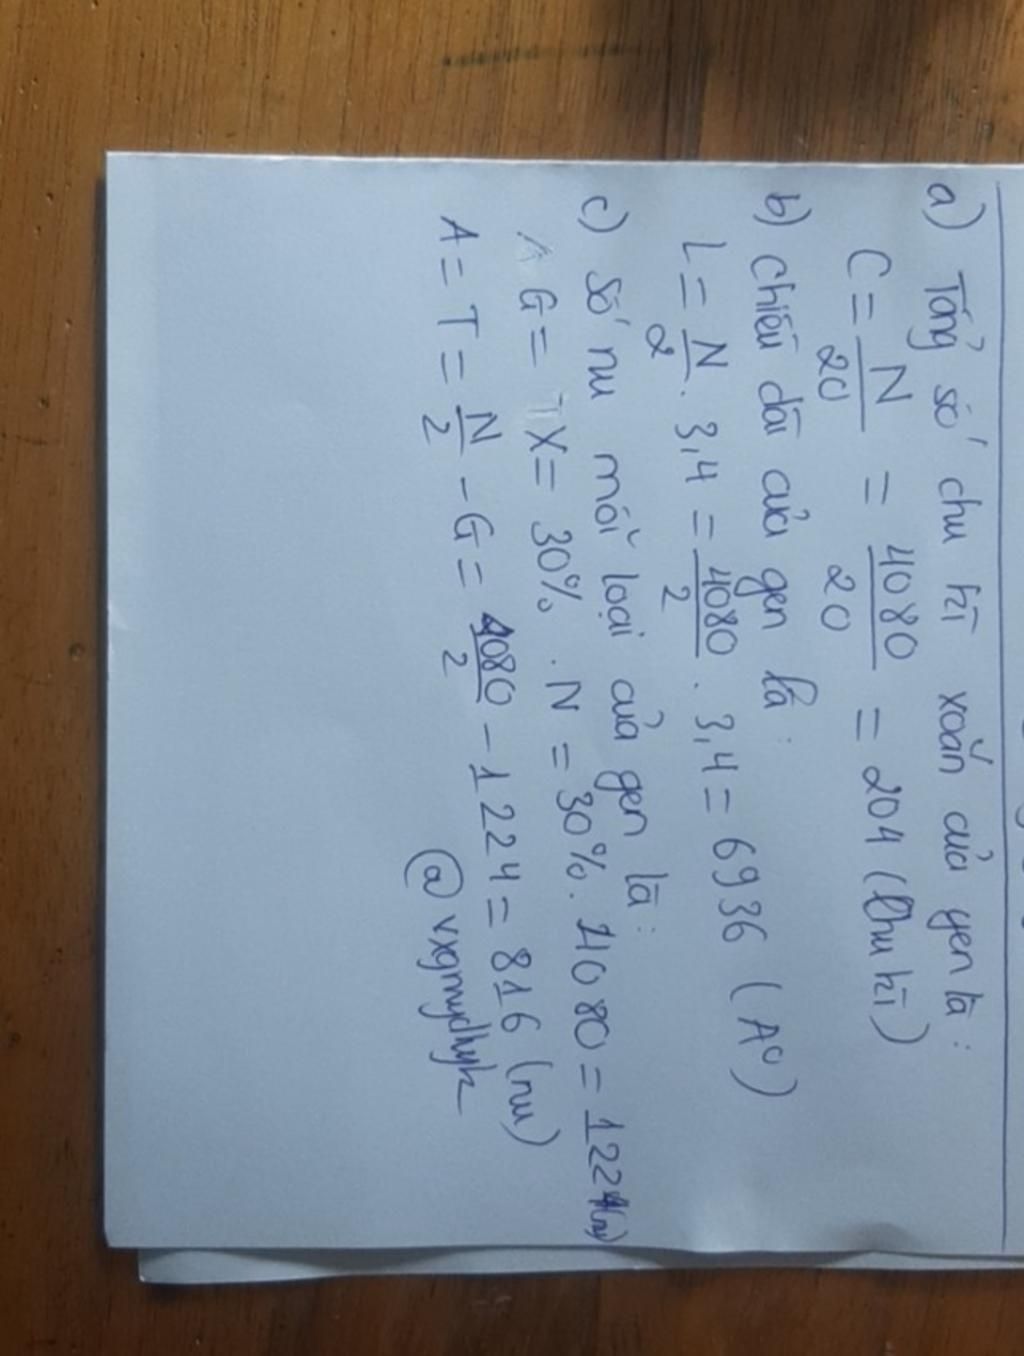 a) Tổng số chu kì xoắn của gen là:
C = N/20 = 4080/20 = 204 (chu kì)
b) chiều dài của gen là:
L = N/2 . 3,4 = 4080/2 . 3,4 = 6936 (A⁰)
c) số nu mỗi loại của gen là:
G = X = 30% . N = 30% . 4080 = 1224 (nu)
A = T = N/2 - G = 4080/2 - 1224 = 816 (nu)